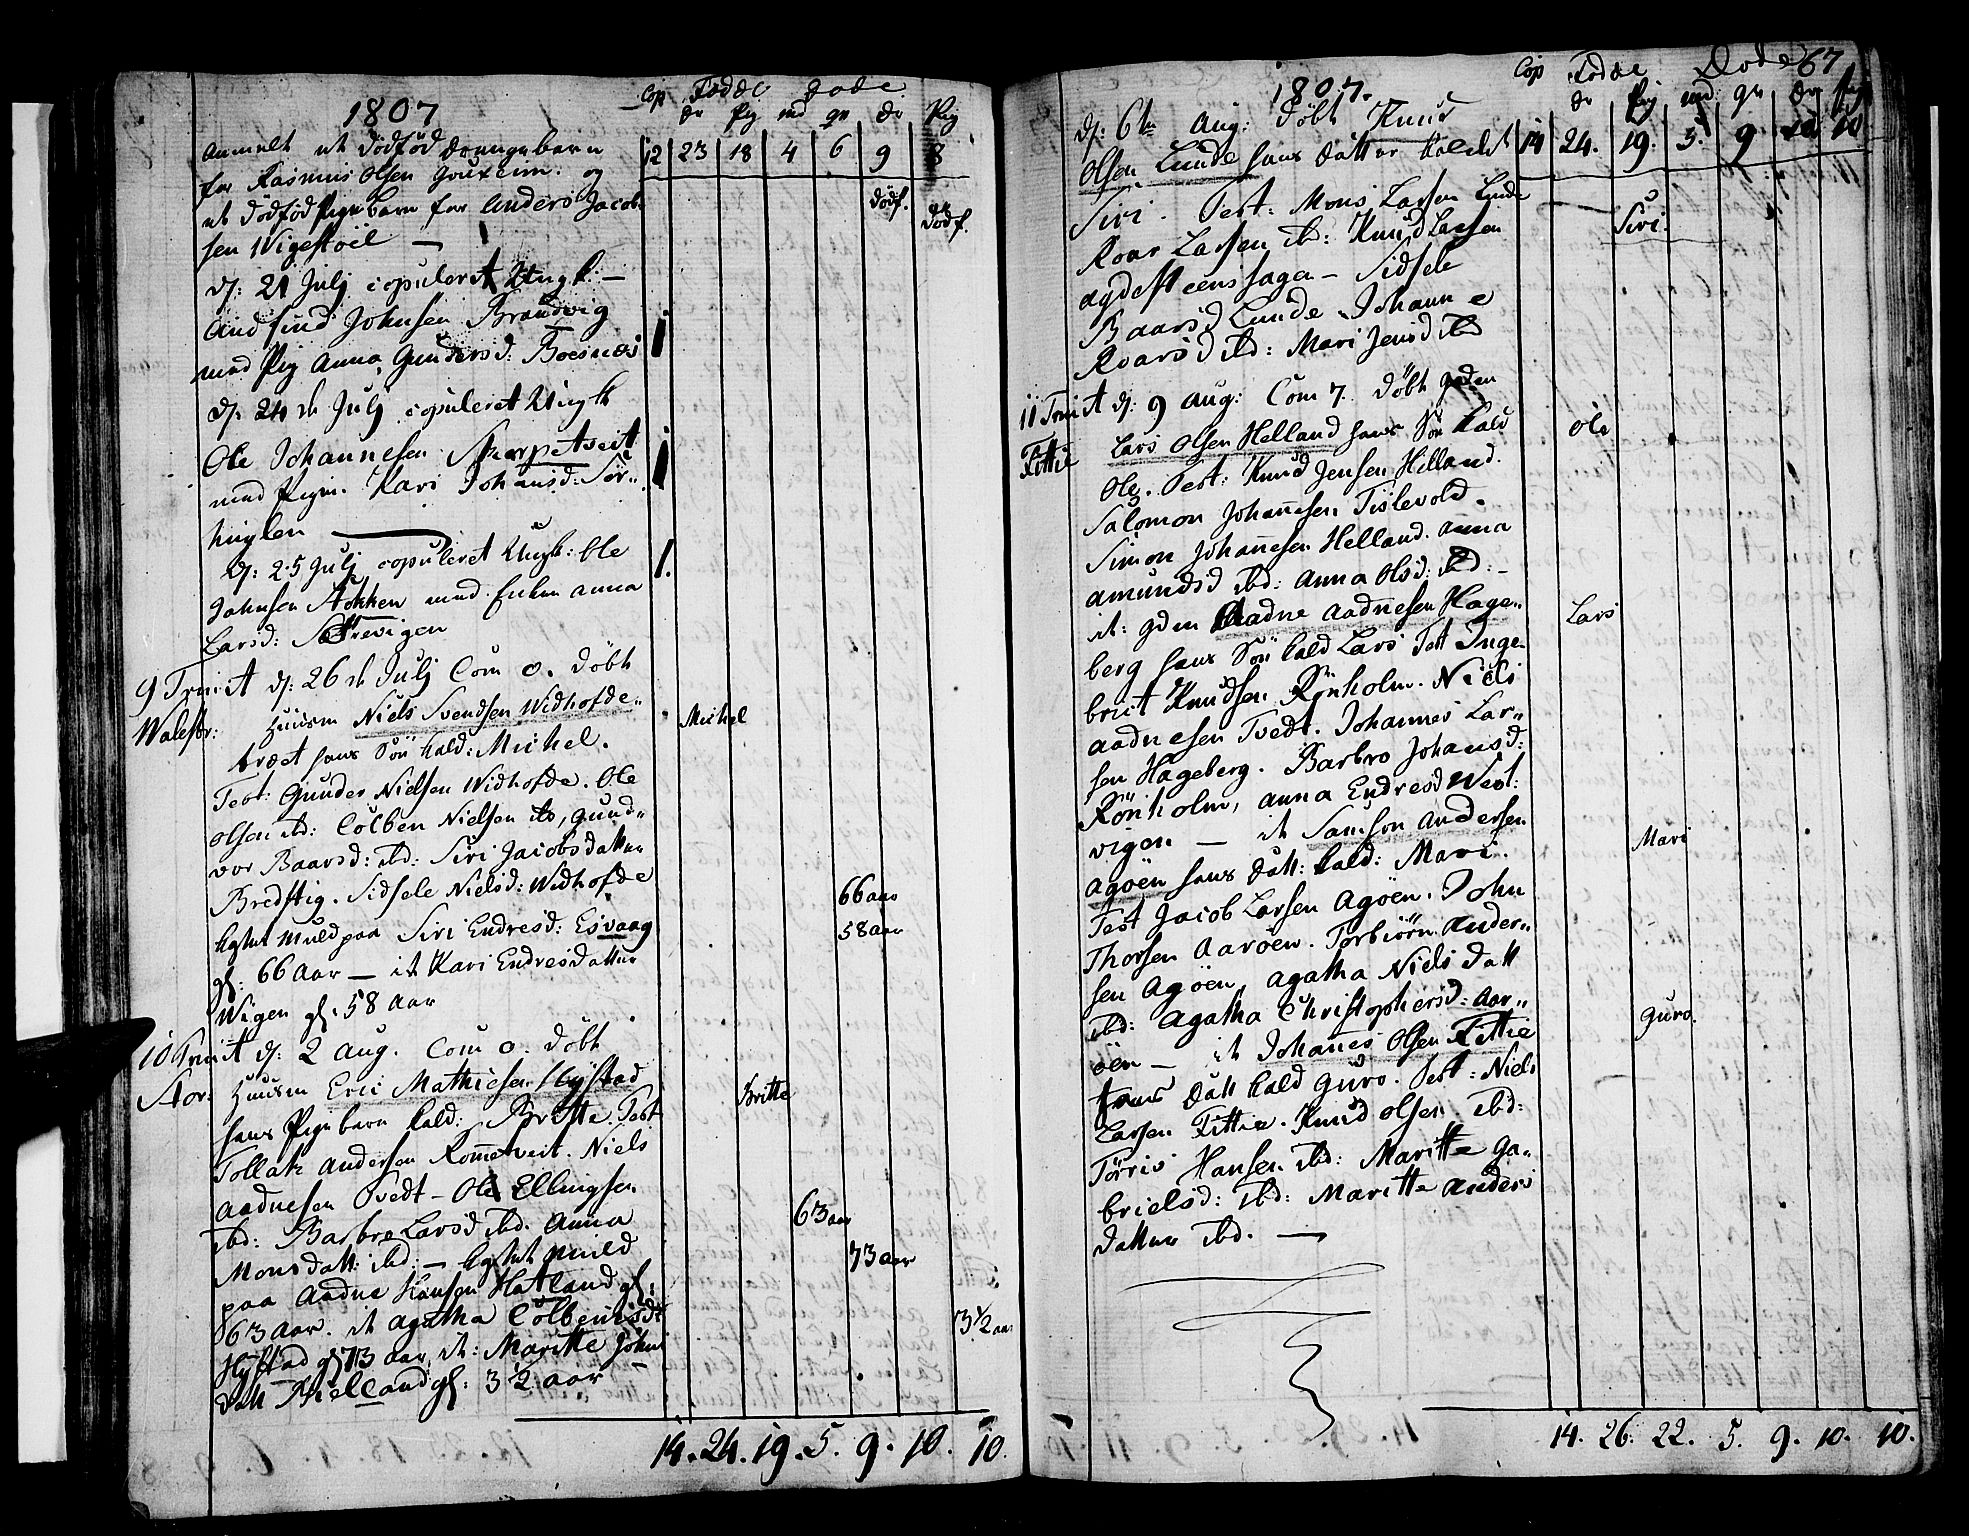 1807
Cop Födde döde
dr Pig md qv dr Pig
12 23 18 4 6 9 8
anmelt et dödföd drængebarn
for Rasmus Olsen Gouxeim. og
et dodföd Pigebarn for Anders Jacob-
sen Wigestöel —
dödf.
dödf.
d: 21 Julj copuleret Ungk: —
And find Johnsen Brandvig
med Pig Anna Gundersd: Boesnes
d. 24de Julj copuleret Ungk
Ole Johannesen Skarpetveit
med Pigen Kari Johansd: Sör-
huglen
d: 25 Julj copuleret Ungk: Ole
Johnsen Stokken med Enken Anna
Larsd: Sætrevigen
9 Trinit d: 26de Julj Com 0. döbt
Walestr: Huusm Niels Svendsen Widhofde-
bræt hans Sön kald: Michel.
Michel
Test: Gunder Nielsen Widhofde. Ole
Olsen ibd: Colben Nielsen ib, Gund-
vor Baarsd: ibd: Siri Jacobsdatter
Bredstig. Sidsele Nielsd: Widhofde
kastet Muld paa Siri Endresd: Esvaag
66 aar
gl: 66 Aar — it Kari Endresdatter
58 aar
Wigen gl. 58 Aar
10 Trinit d: 2 Aug. Com 0. döbt
Stor: Huusm Eric Mathiesen Hystad
hans Pigebarn kald: Britte. Test
Britte
Tollak Andersen Rommetveit. Niels
Aadnesen Tvedt — Ole Ellingsen
ibd: Barbre Larsd ibd. Anna
Monsdatt: ibd: — kastet Muld
paa Aadne Hansen Hatland gl:
63 Aar. it Agatha Colbensdr
63 aar
Hystad gl 73 aar, it: Maritte Johns
73 aar
datt Hielland gl: 3 1/2 aar
3 1/2 aar
14. 24. 19. 5. 9. 10. 10.
1807.
Cop Födde Döde 67
dr Pig md: qv dr Pig
14 24. 19. 5. 9 10 10
d: 6te Aug: döbt Knud
Olsen Lunde hans datter kaldet
Siri. Test: Mons Larsen Lunde
Siri.
Roar Larsen ibd: Knud Larsen
Agdesteenshagen — Sidsele
Baarsd Lunde Johanne
Roarsd ibd: Mari Jensd ibd
11 Trinit d: 9 Aug: Com 7. döbt gden
Fittie Lars Olsen Helland hans Sön kald
Ole
Ole. Test: Knud Jensen Helland.
Salomon Johannesen Tislevold.
Simon Johannesen Helland. Anna
Amundsd ibd: Anna Olsd: ibd: —
it: gden Aadne Aadnesen Hage-
Lars
berg hans Sön kald Lars Test Inge-
brict Knudsen Rönholm. Niels
Aadnesen Tvedt. Johannes Lar-
sen Hageberg. Barbro Johansd:
Rönholm, Anna Endresd West:
vigen — it Samson Andersen
Agöen hans datt: kald: Mari.
Mari
Test Jacob Larsen Agöen. John
Thorsen Aaröen. Torbiörn Ander-
sen Agöen, Agatha Niels datt
ibd: Agatha Christophersd: Aar-
öen — it Johannes Olsen Fittie
Guro.
hans datt kald Guro. Test: Niels
Larsen Fittie. Knud Olsen ibd:
Törris Hansen ibd: Maritte Ga-
brielsd: ibd: Maritte Anders
datter ibd. —
14. 26. 22. 5. 9. 10. 10.